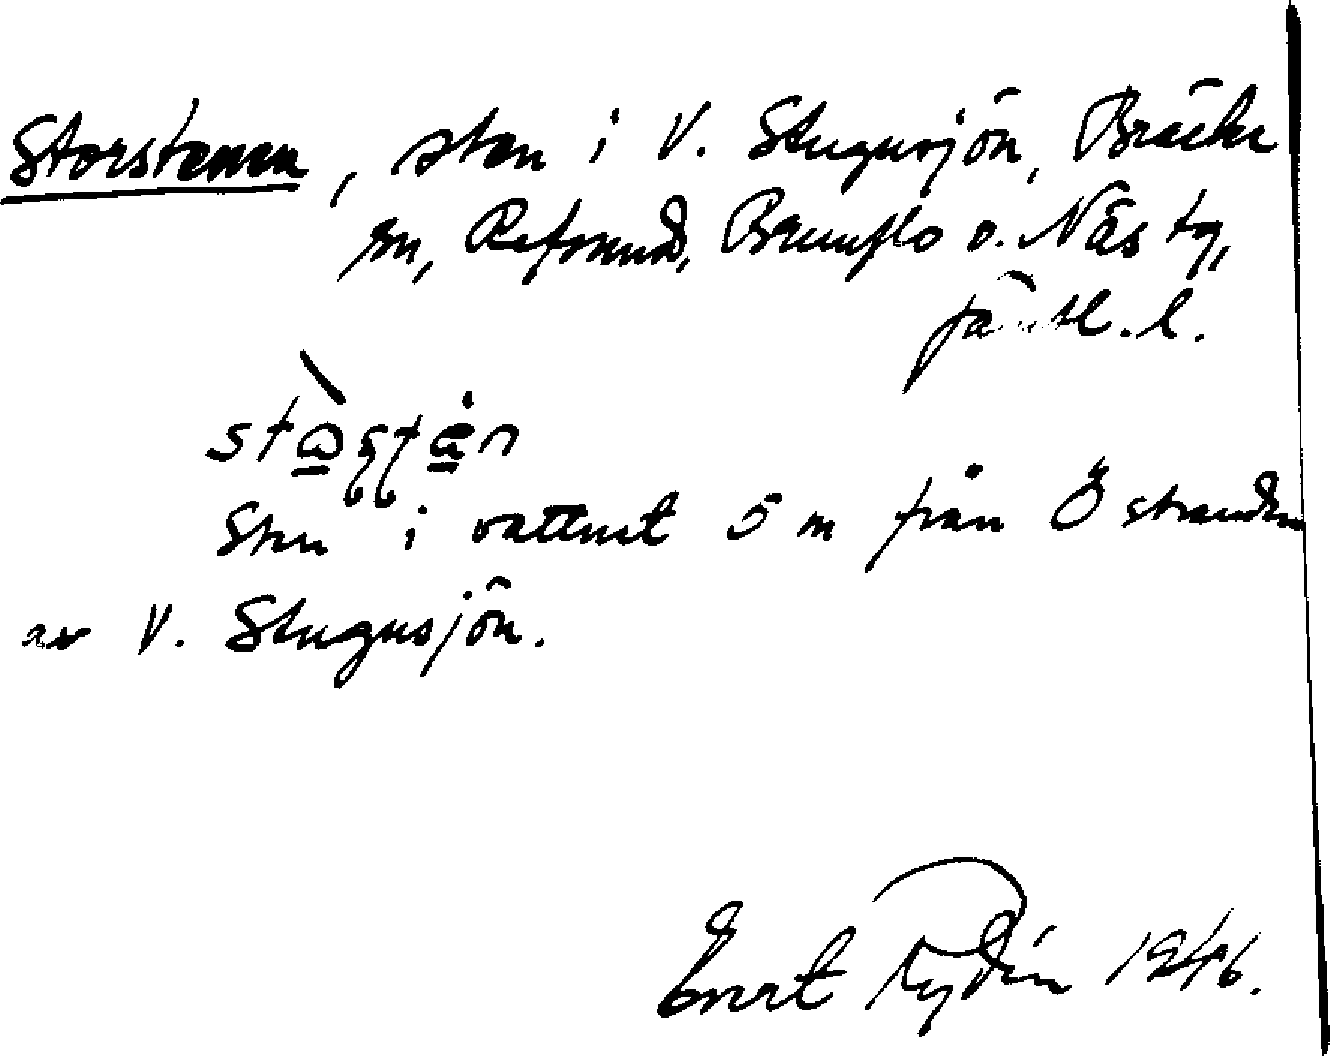 Storstenen, sten i V. Stugusjön, Bräcke
sn, Refsund, Brunflo o. Näs tg,
Jämtl. l.
Sten i vattnet 5 m från Ö stranden
av V. Stugusjön.
Evert Rydin 1946.